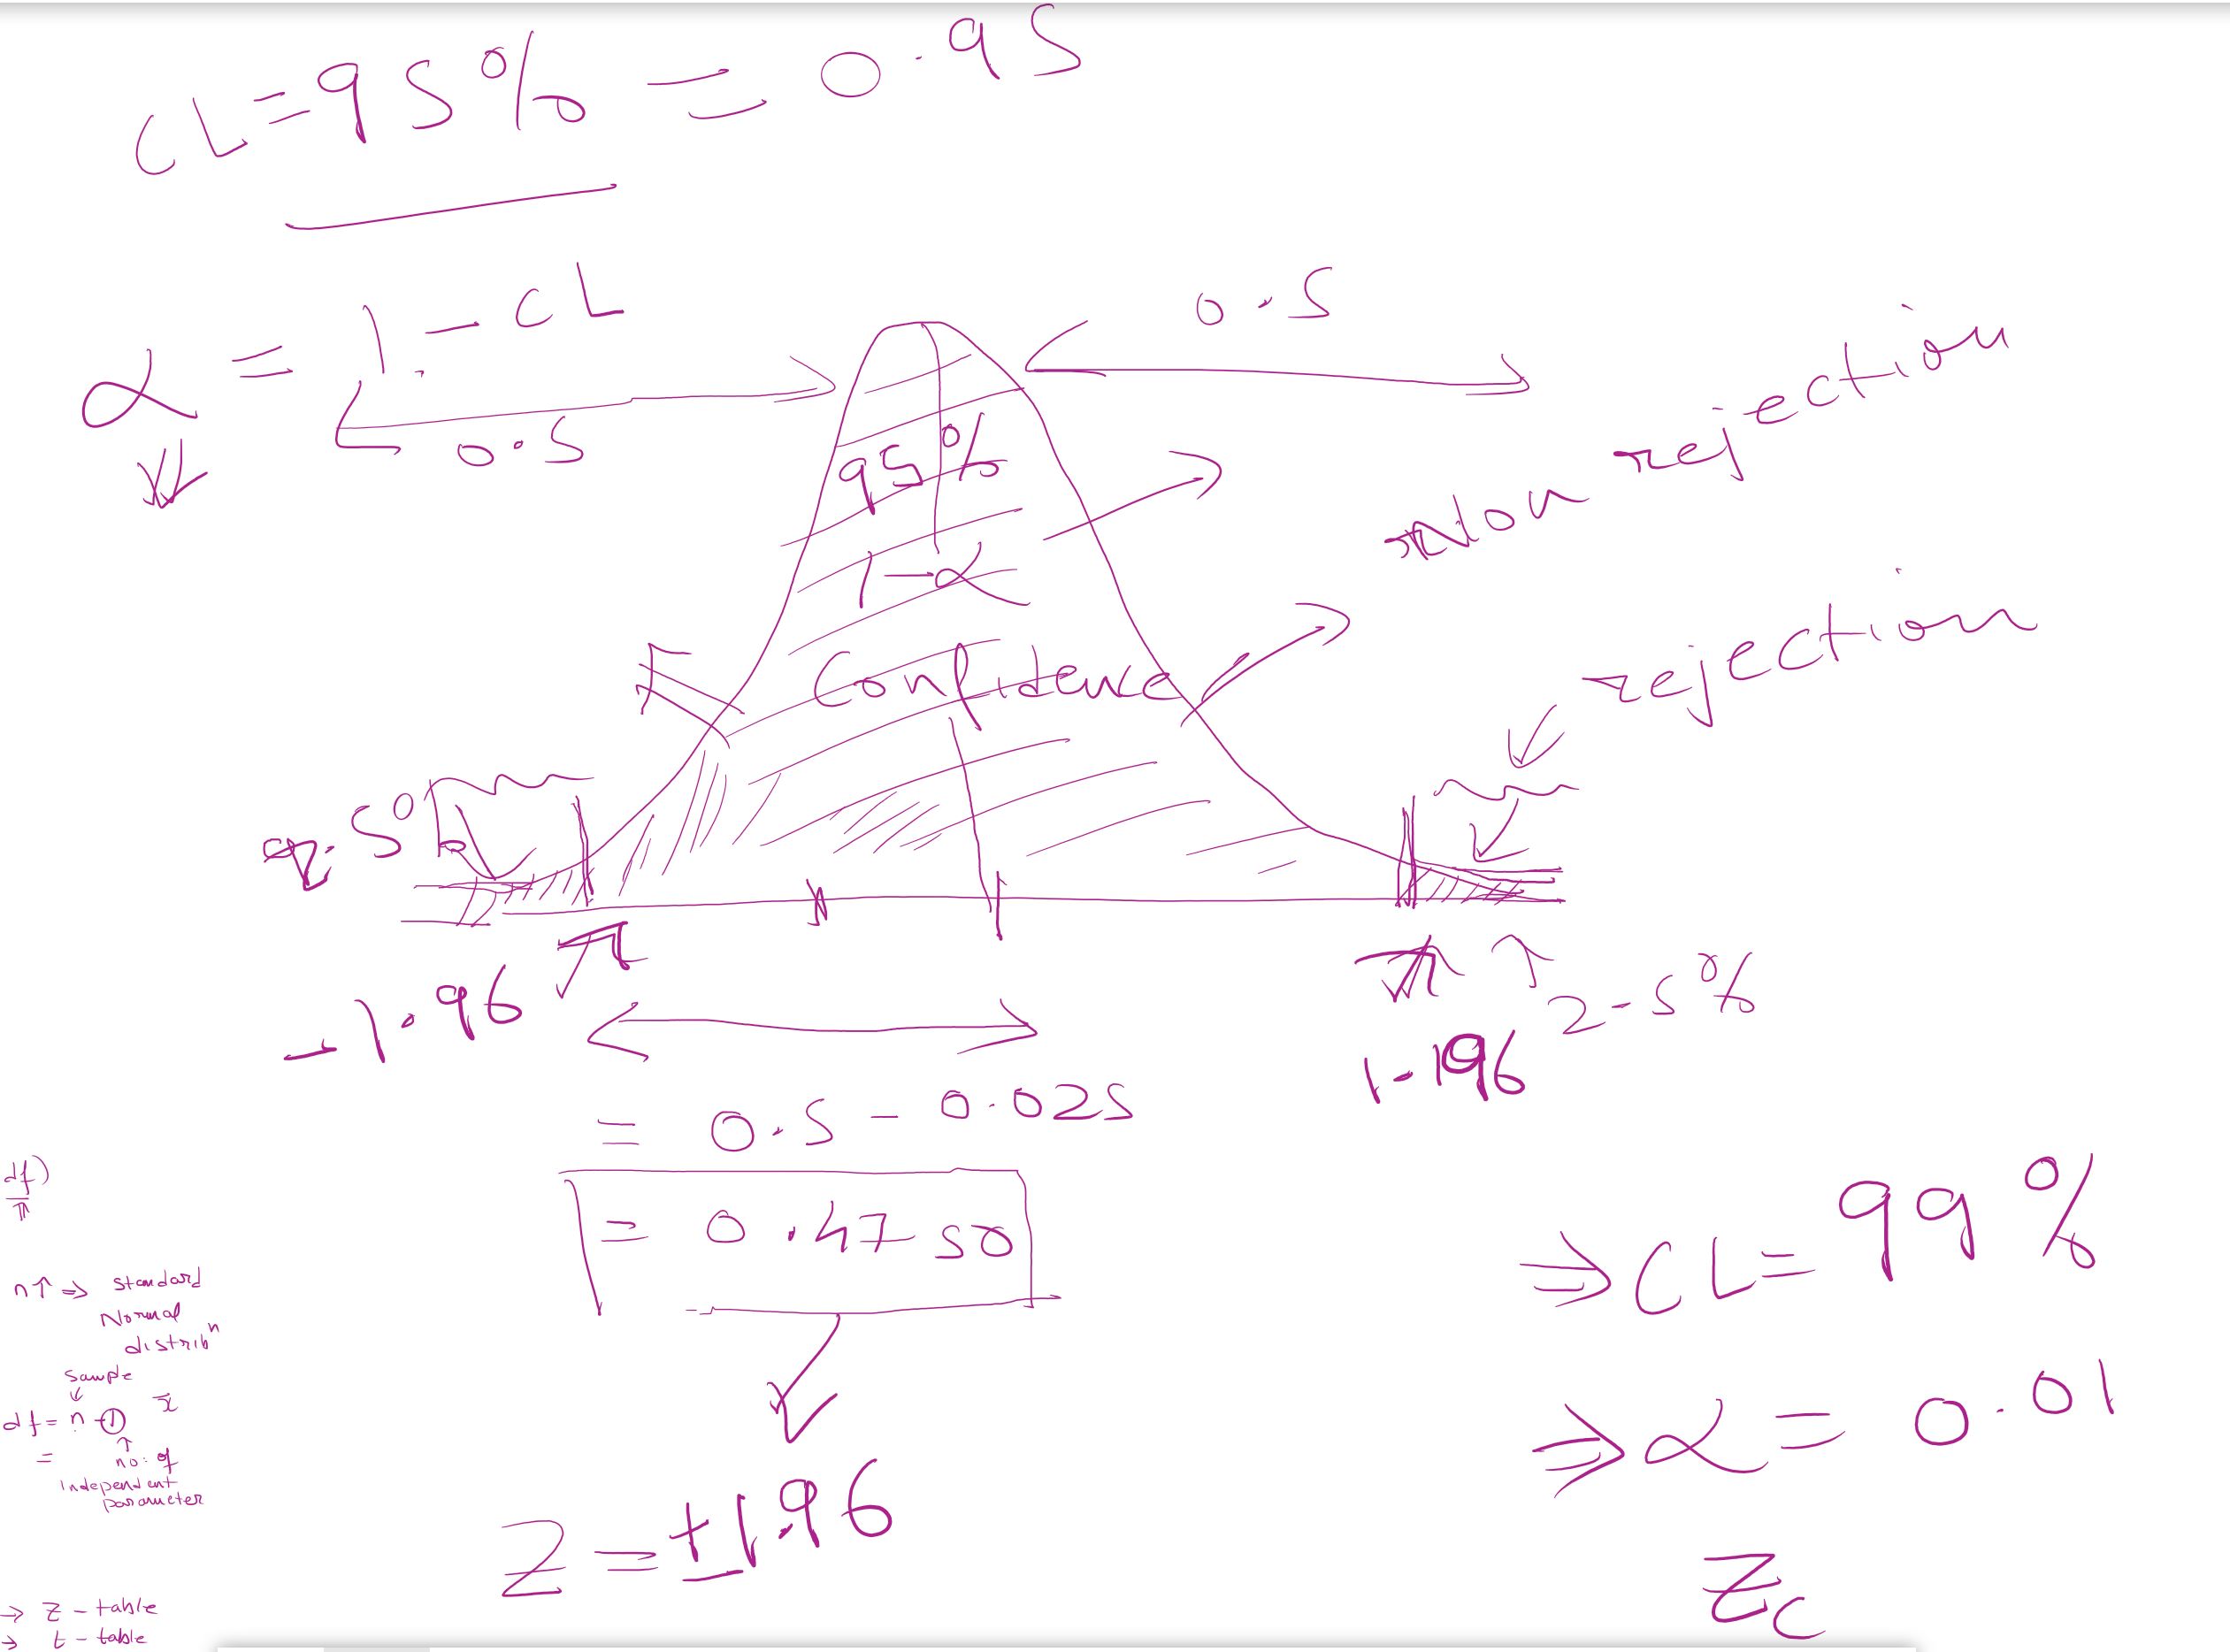 CL = 95% = 0.95
α = 1 - CL
0.5
0.5
95%
1-α
Confidence
Non rejection
rejection
2.5%
-1.96
1.96
2.5%
= 0.5 - 0.025
= 0.4750
Z = ±1.96
⇒ CL = 99%
⇒ α = 0.01
Zc
df)
n↑ ⇒ standard
Normal
distribⁿ
sample
df = n - 1 x̄
= no. of
independent
parameter
→ Z - table
→ t - table